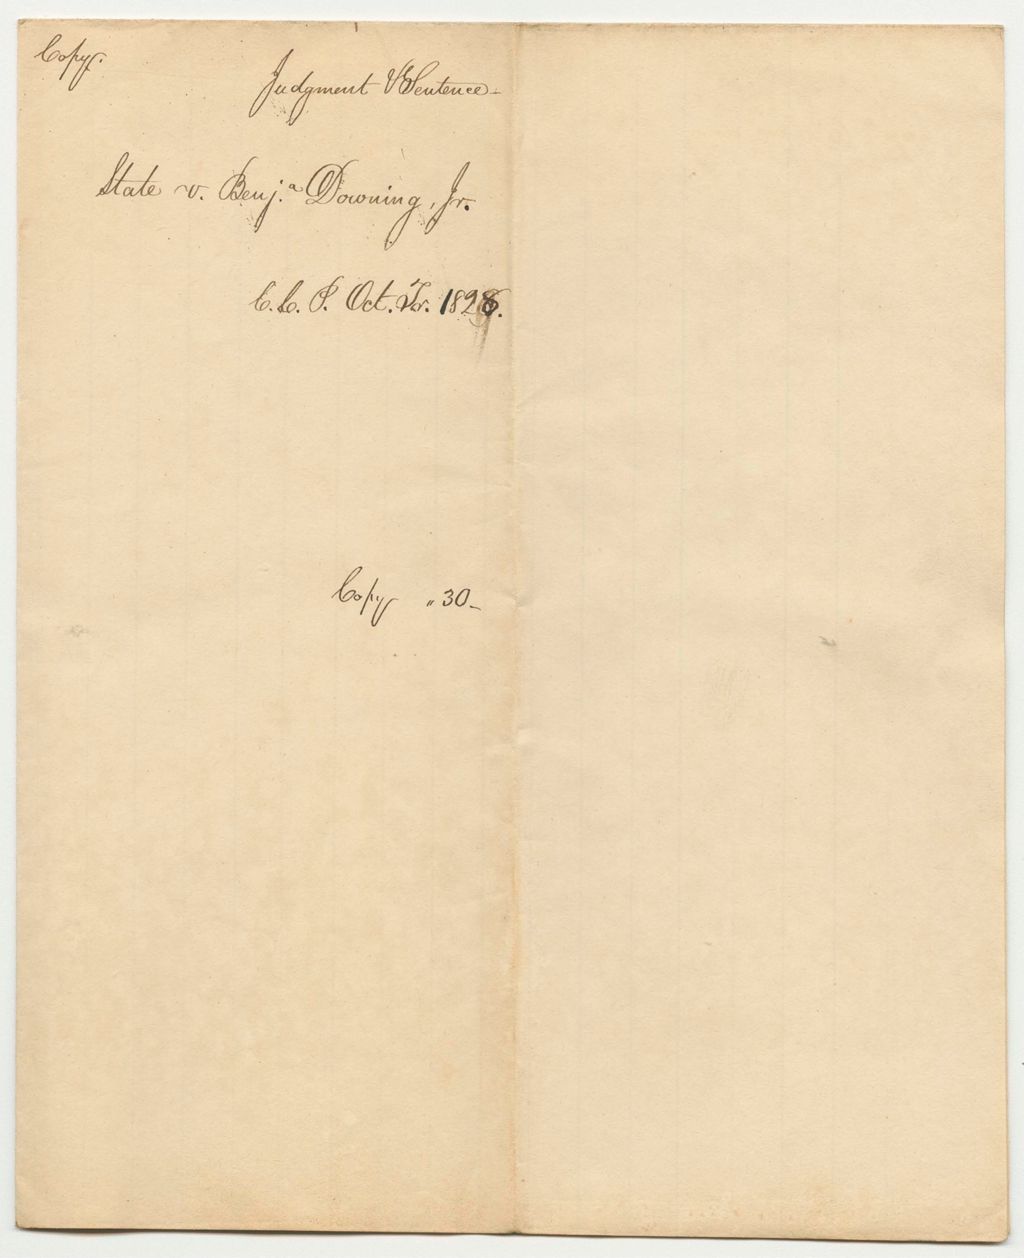 Copy.
Judgment & Sentence -
State v. Benj.ª Downing, Jr.
C. C. P. Oct. Tr. 1828.
Copy „ 30 -